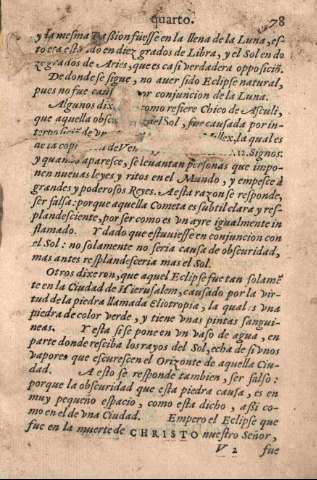 quarto. 78
y la mesma Passion fuesse en la llena de la Luna, es-
to era estãdo en diez grados de Libra, y el Sol en do
ze grados de Aries, que es casi verdadera opposiciõ.
De donde se sigue, no auer sido Eclipse natural,
pues no fue caus por conjuncion de la Luna.
Algunos dix como refiere Chico de Asculi,
que aquella obsc del Sol, fue causada por in-
terposiciõ de vn llex, la qual es
de la cop de Ven 12. Signos.
y quando aparesce, se leuantan personas que impo-
nen nueuas leyes y ritos en el Mundo, y empesce à
grandes y poderosos Reyes. A esta razon se responde,
ser falsa: porque aquella Cometa es subtil clara y res-
plandesciente, por ser como es vn ayre igualmente in
flamado. Y dado que estuuiesse en conjuncion con
el Sol: no solamente no seria causa de obscuridad,
mas antes resplandesceria mas el Sol.
Otros dixeron, que aquel Eclipse fue tan solamẽ
te en la Ciudad de Hierusalem, causado por la vir-
tud de la piedra llamada Eliotropia, la qual es vna
piedra de color verde, y tiene vnas pintas sangui-
neas. Y esta si se pone en vn vaso de agua, en
parte donde reciba los rayos del Sol, echa de si vnos
vapores que escurescen el Orizonte de aquella Ciu-
dad. A esto se responde tambien, ser falso:
porque la obscuridad que esta piedra causa, es en
muy pequeño espacio, como esta dicho, assi co-
mo en el de vna Ciudad. Empero el Eclipse que
fue en la muerte de CHRISTO nuestro Señor,
V 2 fue